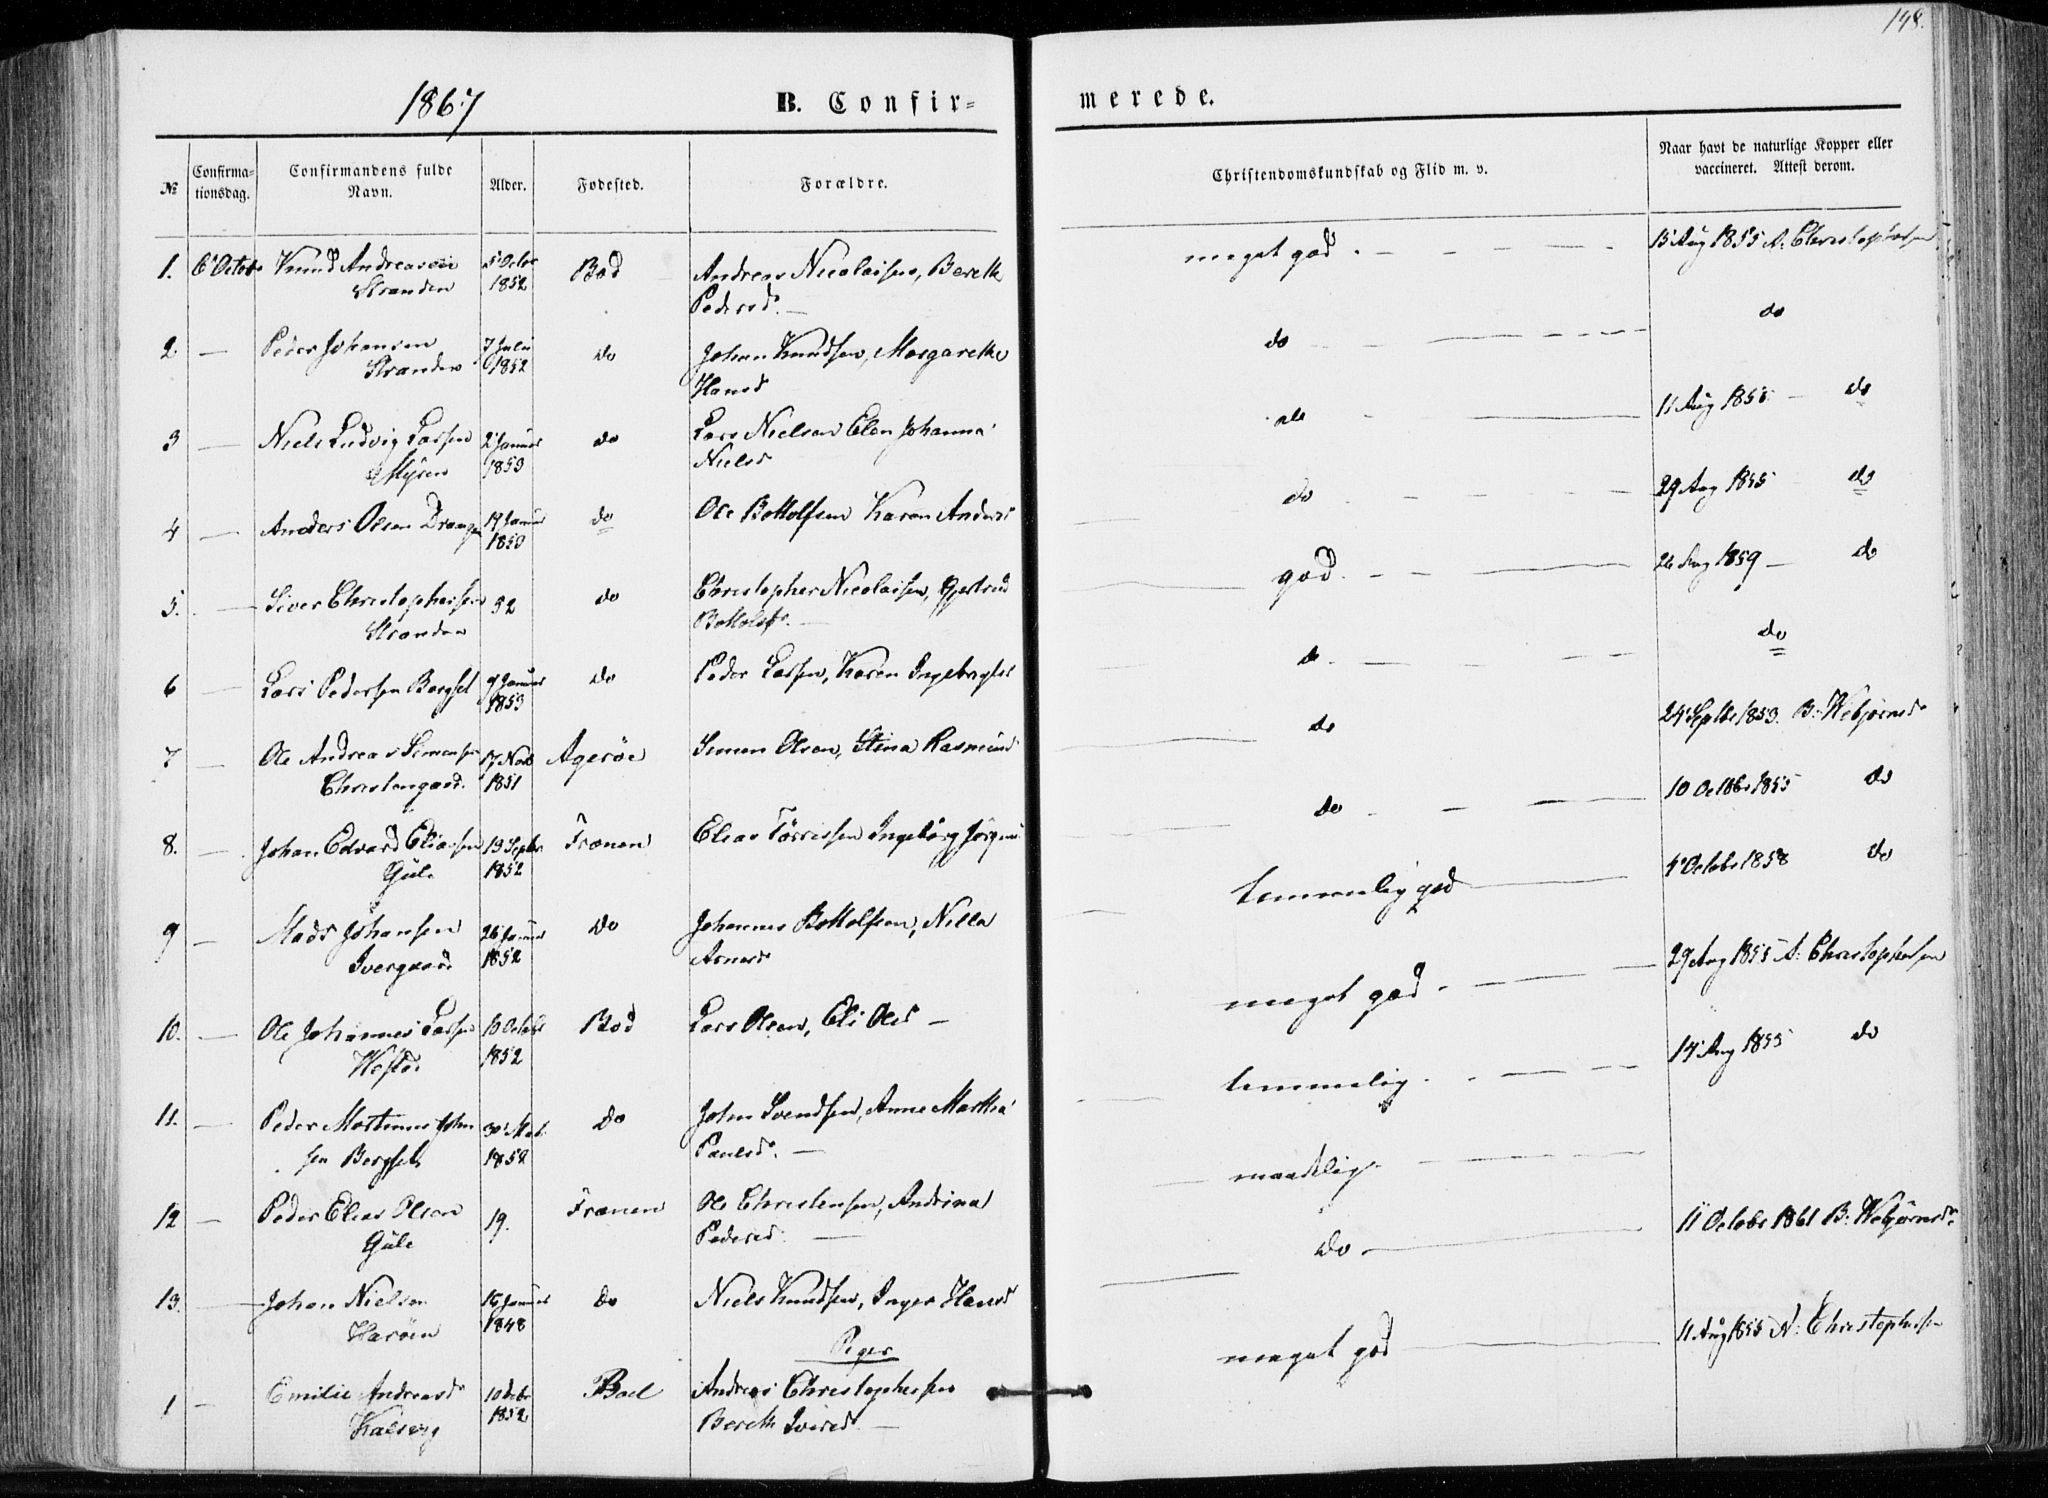 198.
1867
B. Confir=
merede.
№
Confirma-
tionsdag.
Confirmandens fulde
Navn.
Alder.
Fødested.
Forældre.
Christendomskundskab og Flid m. v.
Naar havt de naturlige Kopper eller
vaccineret. Attest derom.
1. 6 Octob Knud Andreasen 5 Octbr Bod Andreas Nicolaisen, Bereth meget god. 15 Aug 1855 A. Christophersen
Stranden 1852 Pedersd.
2 — Peder Johansen 7 Juli do Johan Knudsen, Margarethe do do
Stranden 1852 Hansd
3 — Niels Ludvig Larsen 2 Januar do Lars Nielsen Elen Johanna do 11 Aug 1855 — do
Myren 1853 Nielsd
4 — Anders Olsen 19 Januar do Ole Bottolfsen Karen Andersd do 29 Aug 1855 do
1853
5. — Siver Christophersen 52 do Christopher Nicolaisen, Gjertrud god. 26 Aug 1859 — do
Stranden Bottolfsd. —
6 — Lars Pedersen Bergset 9 Januar do Peder Larsen, Karen Ingebrigtsd do. do
1853
7 — Ole Andreas Simensen 17 Novb Agerøe Simen Olsen, Stina Rasmusd do 24 Septbr 1853. B. Webjørnsd
Christengaard. 1851
8. — Johan Edvard Eliassen 13 Septbr Frænen Elias Tørrissen Ingeborg Jørgensd do 10 Octbr 1855 do
Gule 1852
9 — Mads Johansen 26 Januar do Johannes Bottolfsen, Nilla temmelig god 4 Octobr 1858 do
Ivergaard 1852 Arnesd
10. — Ole Johannes Larsen 10 Octobr Bod Lars Olsen, Eli Olsd — meget god 29 Aug 1855 A. Christophersen
1852
11. — Peder Mortinus John 30 Mai do John Svendsen, Anne Martha temmelig. 14 Aug 1855 do
sen Bergset 1852 Paulsd. —
12 — Peder Elias Olsen 19. Frænen Ole Christensen, Andrina maadelig.
Gule Pedersd. —
13. — Johan Nielsen 16 Januar do Niels Knudsen, Inger Hansd do 11 Octobr 1861 B. Webjørnsd.
Harøen 1848
Piger
1 — Emilie Andreasd 10 Decbr Bod Andreas Christophersen meget god 11 Aug 1855 N. Christophersen
1852 Bereth Iversd —